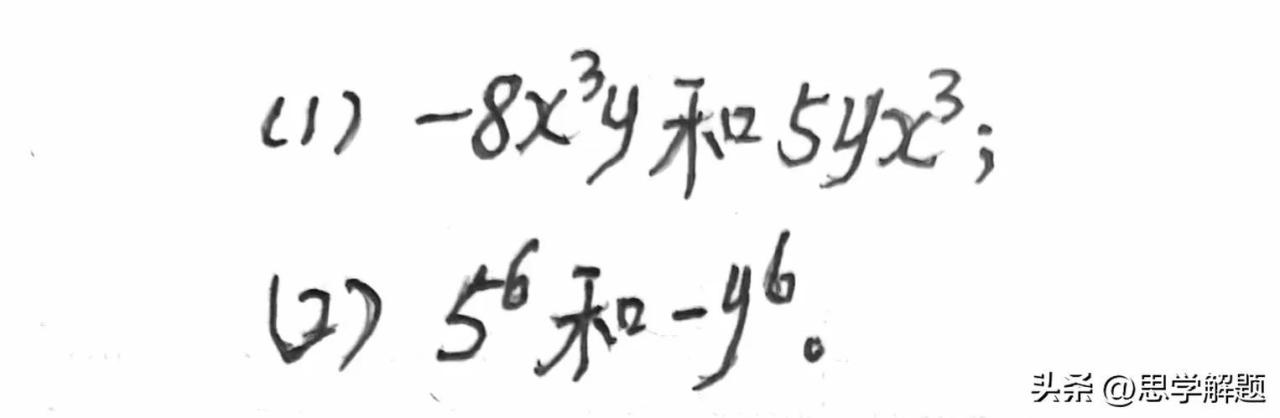 (1) -8x³y 和 5yx³;
(2) 5⁶ 和 -y⁶。
头条 @思学解题